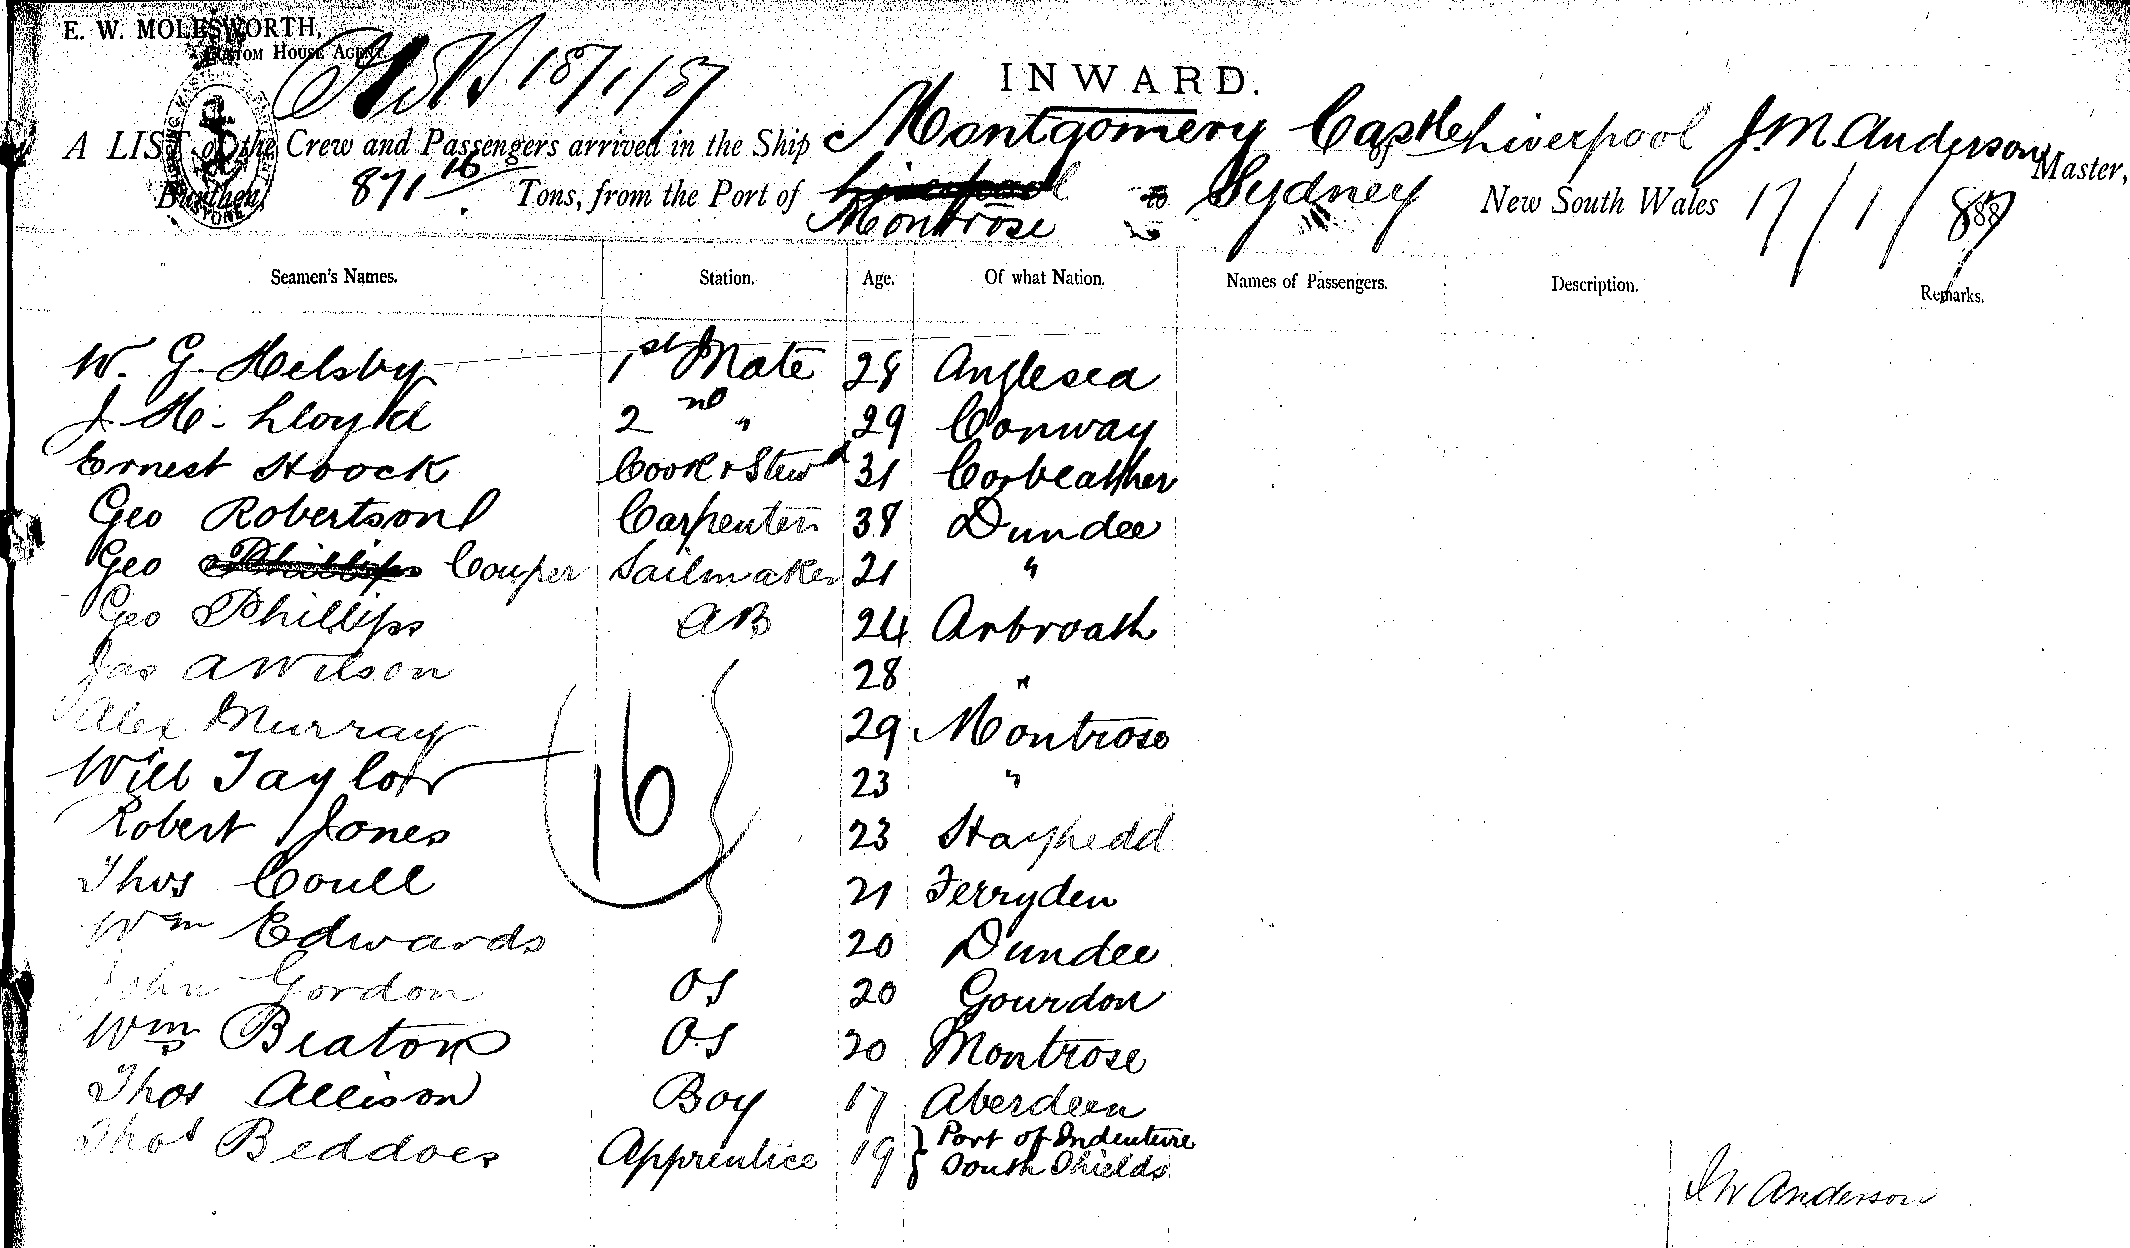 E. W. MOLESWORTH,
CUSTOM HOUSE AGENT
18/1/87
INWARD.
A LIST of the Crew and Passengers arrived in the Ship Montgomery Castle Liverpool J. M. Anderson Master,
Burthen 871 16 Tons, from the Port of Liverpool Montrose to Sydney New South Wales 17/1/887
Seamen's Names. Station. Age. Of what Nation. Names of Passengers. Description. Remarks.
W. G. Helsby 1st Mate 28 Anglesea
J. H. Lloyd 2nd " 29 Conway
Ernest Hoock Cook & Stewd 31
Geo Robertson Carpenter 38 Dundee
Geo Phillips Couper Sailmaker 21 "
Geo Phillips AB 24 Arbroath
Jas A Wilson 28 "
Alex Murray 29 Montrose
Will Taylor 23 "
Robert Jones 23
16
Thos Coull 21 Ferryden
Wm Edwards 20 Dundee
John Gordon OS 20 Gourdon
Wm Beaton OS 20 Montrose
Thos Allison Boy 17 Aberdeen
Thos Beddoes Apprentice 19 } Port of Indenture
South Shields
J M Anderson